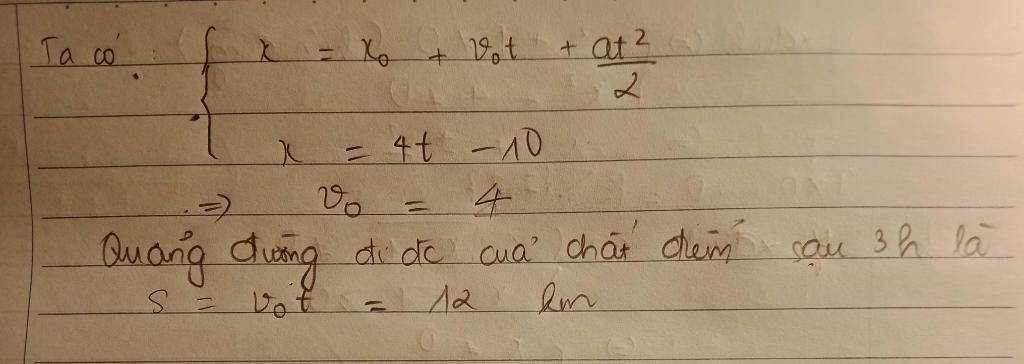 Ta có: { x = x₀ + v₀t + at²/2
x = 4t - 10
=> v₀ = 4
Quảng đường đi đc của chất điểm sau 3h là
S = v₀t = 12 km